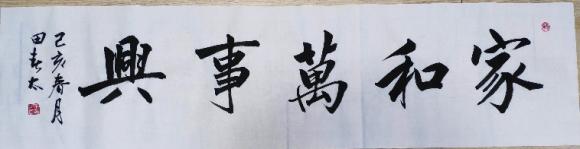 家和萬事興
己亥春月
田春太